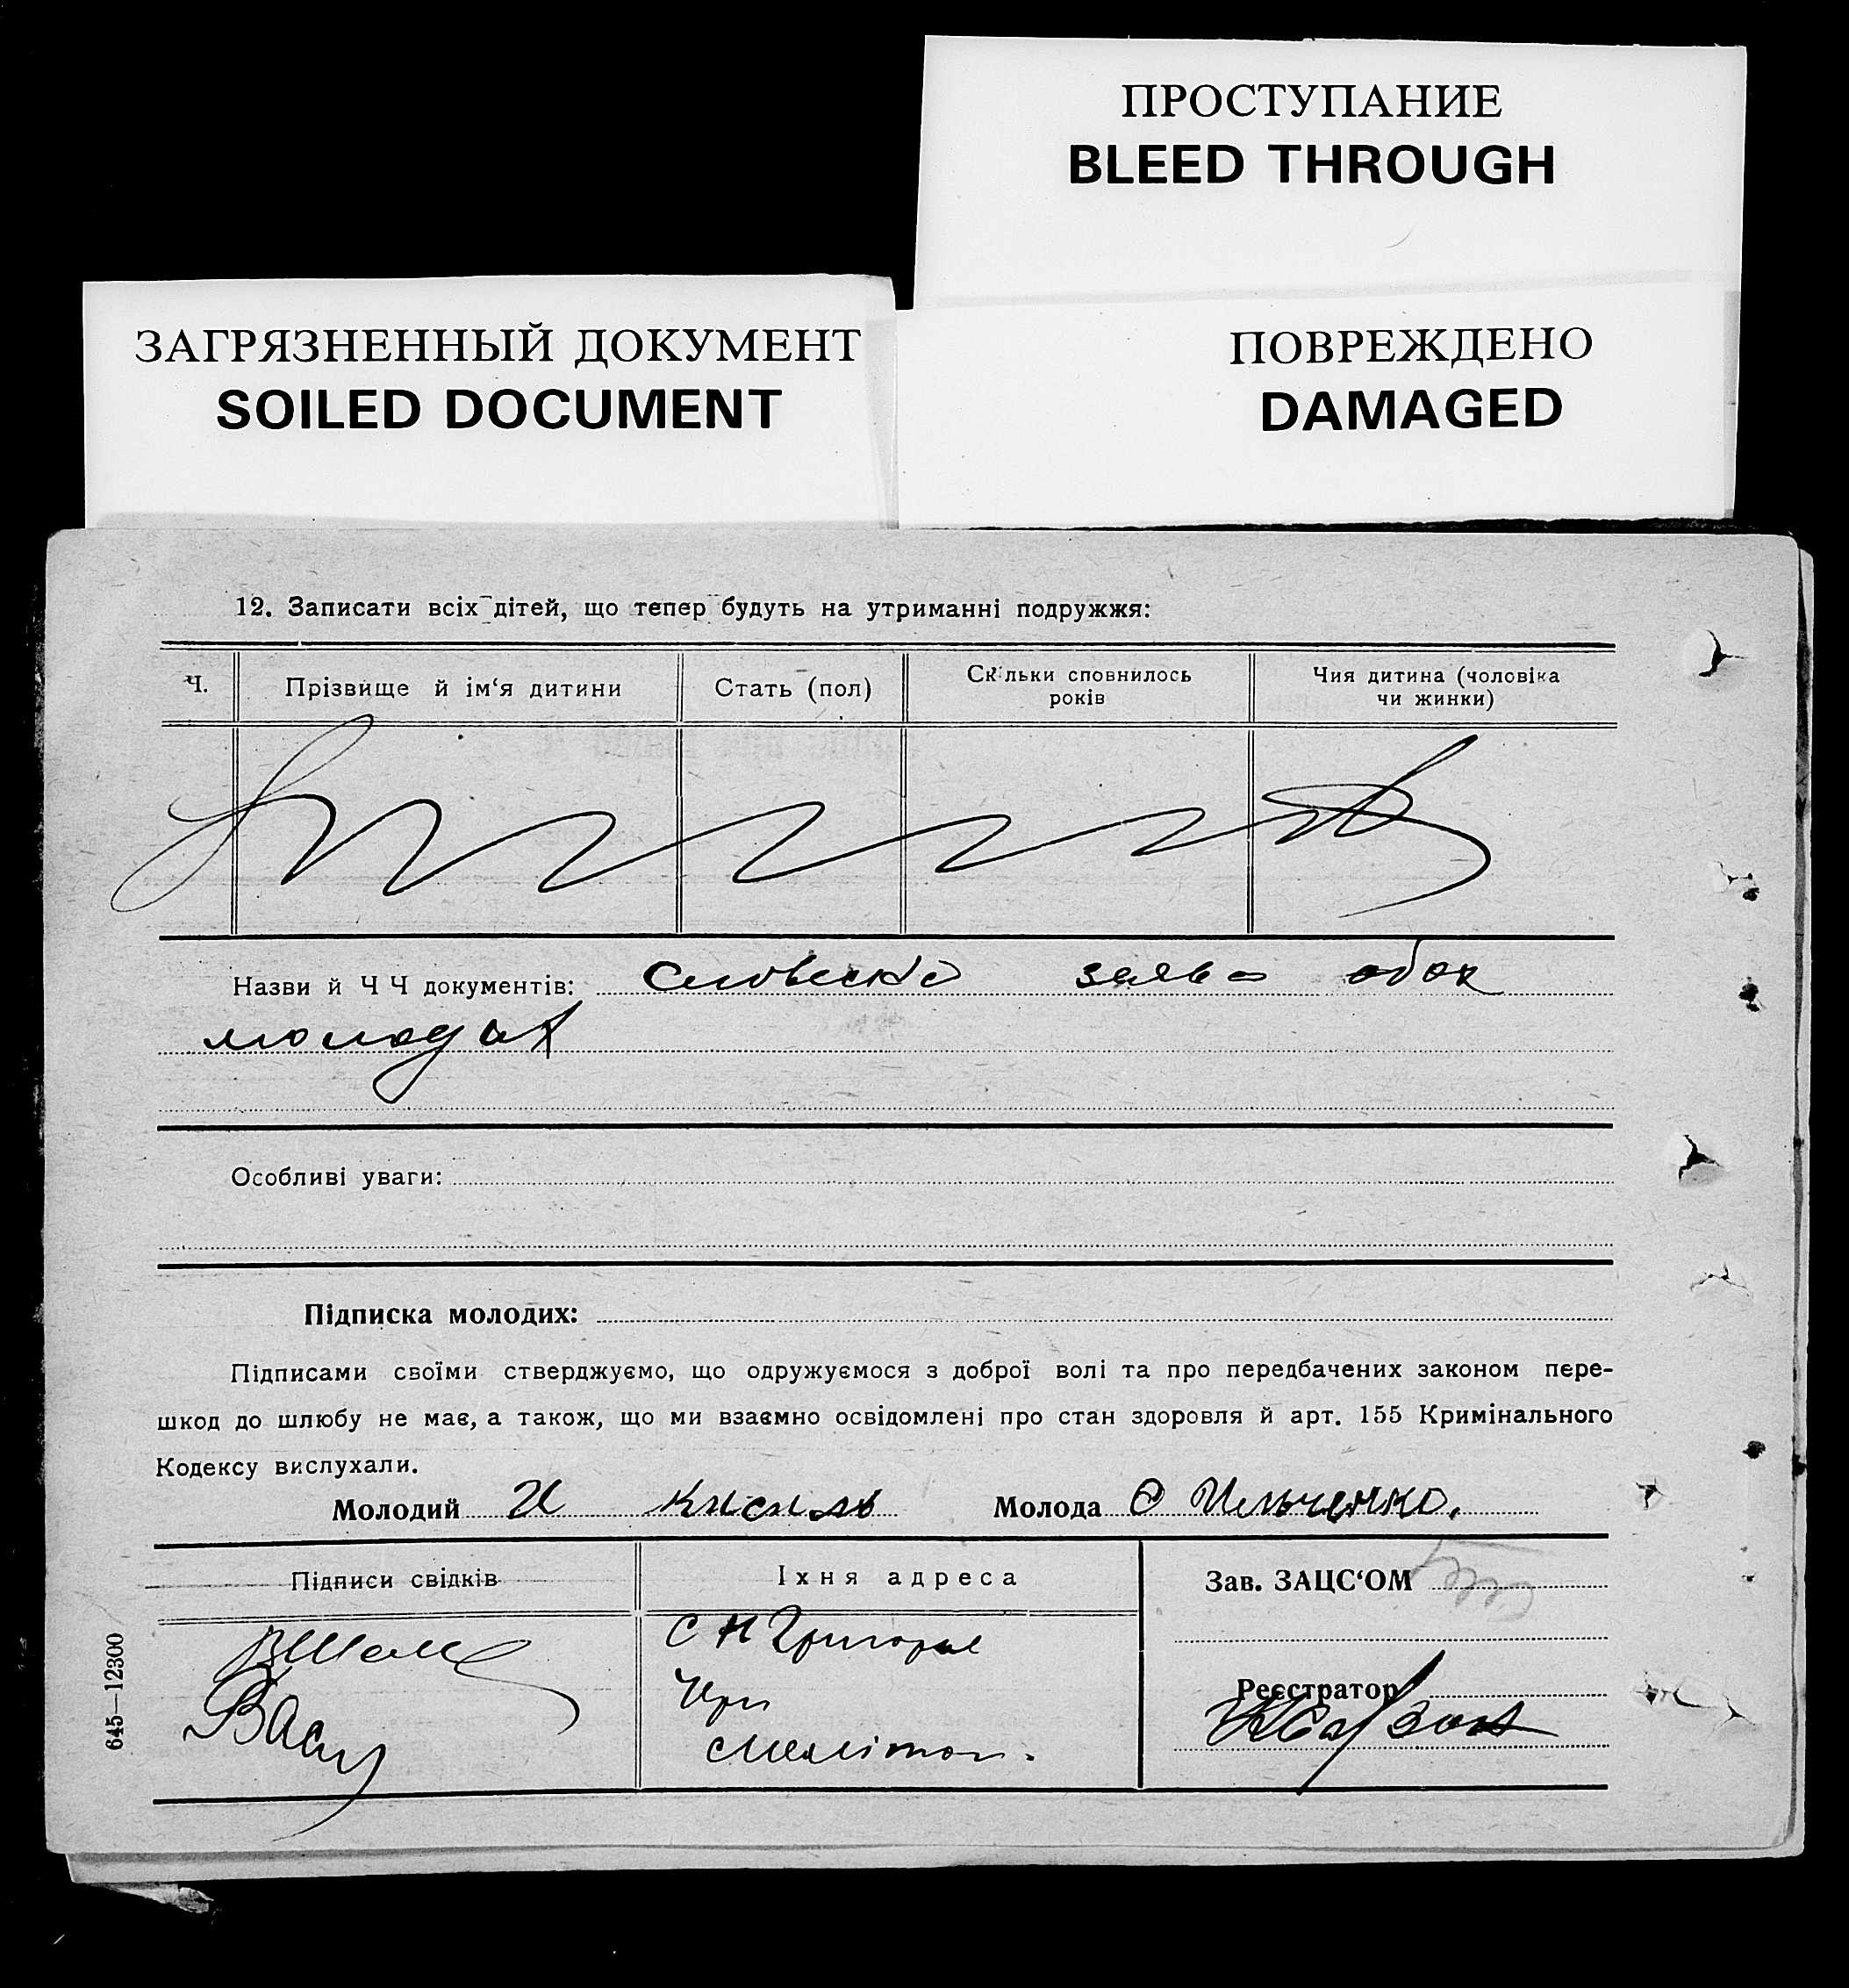 ПРОСТУПАНИЕ
BLEED THROUGH
ЗАГРЯЗНЕННЫЙ ДОКУМЕНТ
SOILED DOCUMENT
ПОВРЕЖДЕНО
DAMAGED
12. Записати всіх дітей, що тепер будуть на утриманні подружжя:
Ч.
Прізвище й ім‘я дитини
Стать (пол)
Скільки сповнилось
років
Чия дитина (чоловіка
чи жинки)
Назви й Ч Ч документів: Словесна заява обох
молодых
Особливі уваги:
Підписка молодих:
Підписами своїми стверджуємо, що одружуємося з доброї волі та про передбачених законом пере-
шкод до шлюбу не має, а також, що ми взаємно освідомлені про стан здоровля й арт. 155 Кримінального
Кодексу вислухали.
Молодий И Кисиль Молода О Ильченко.
Підписи свідків
Їхня адреса
Зав. ЗАЦС‘ОМ
С Н Григорье
Реєстратор
645—12300